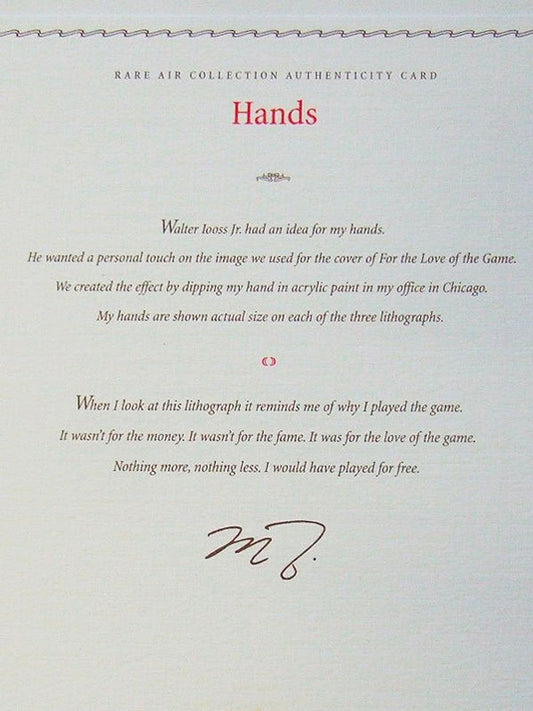 RARE AIR COLLECTION AUTHENTICITY CARD
Hands
Walter Iooss Jr. had an idea for my hands.
He wanted a personal touch on the image we used for the cover of For the Love of the Game.
We created the effect by dipping my hand in acrylic paint in my office in Chicago.
My hands are shown actual size on each of the three lithographs.
When I look at this lithograph it reminds me of why I played the game.
It wasn't for the money. It wasn't for the fame. It was for the love of the game.
Nothing more, nothing less. I would have played for free.
M J.